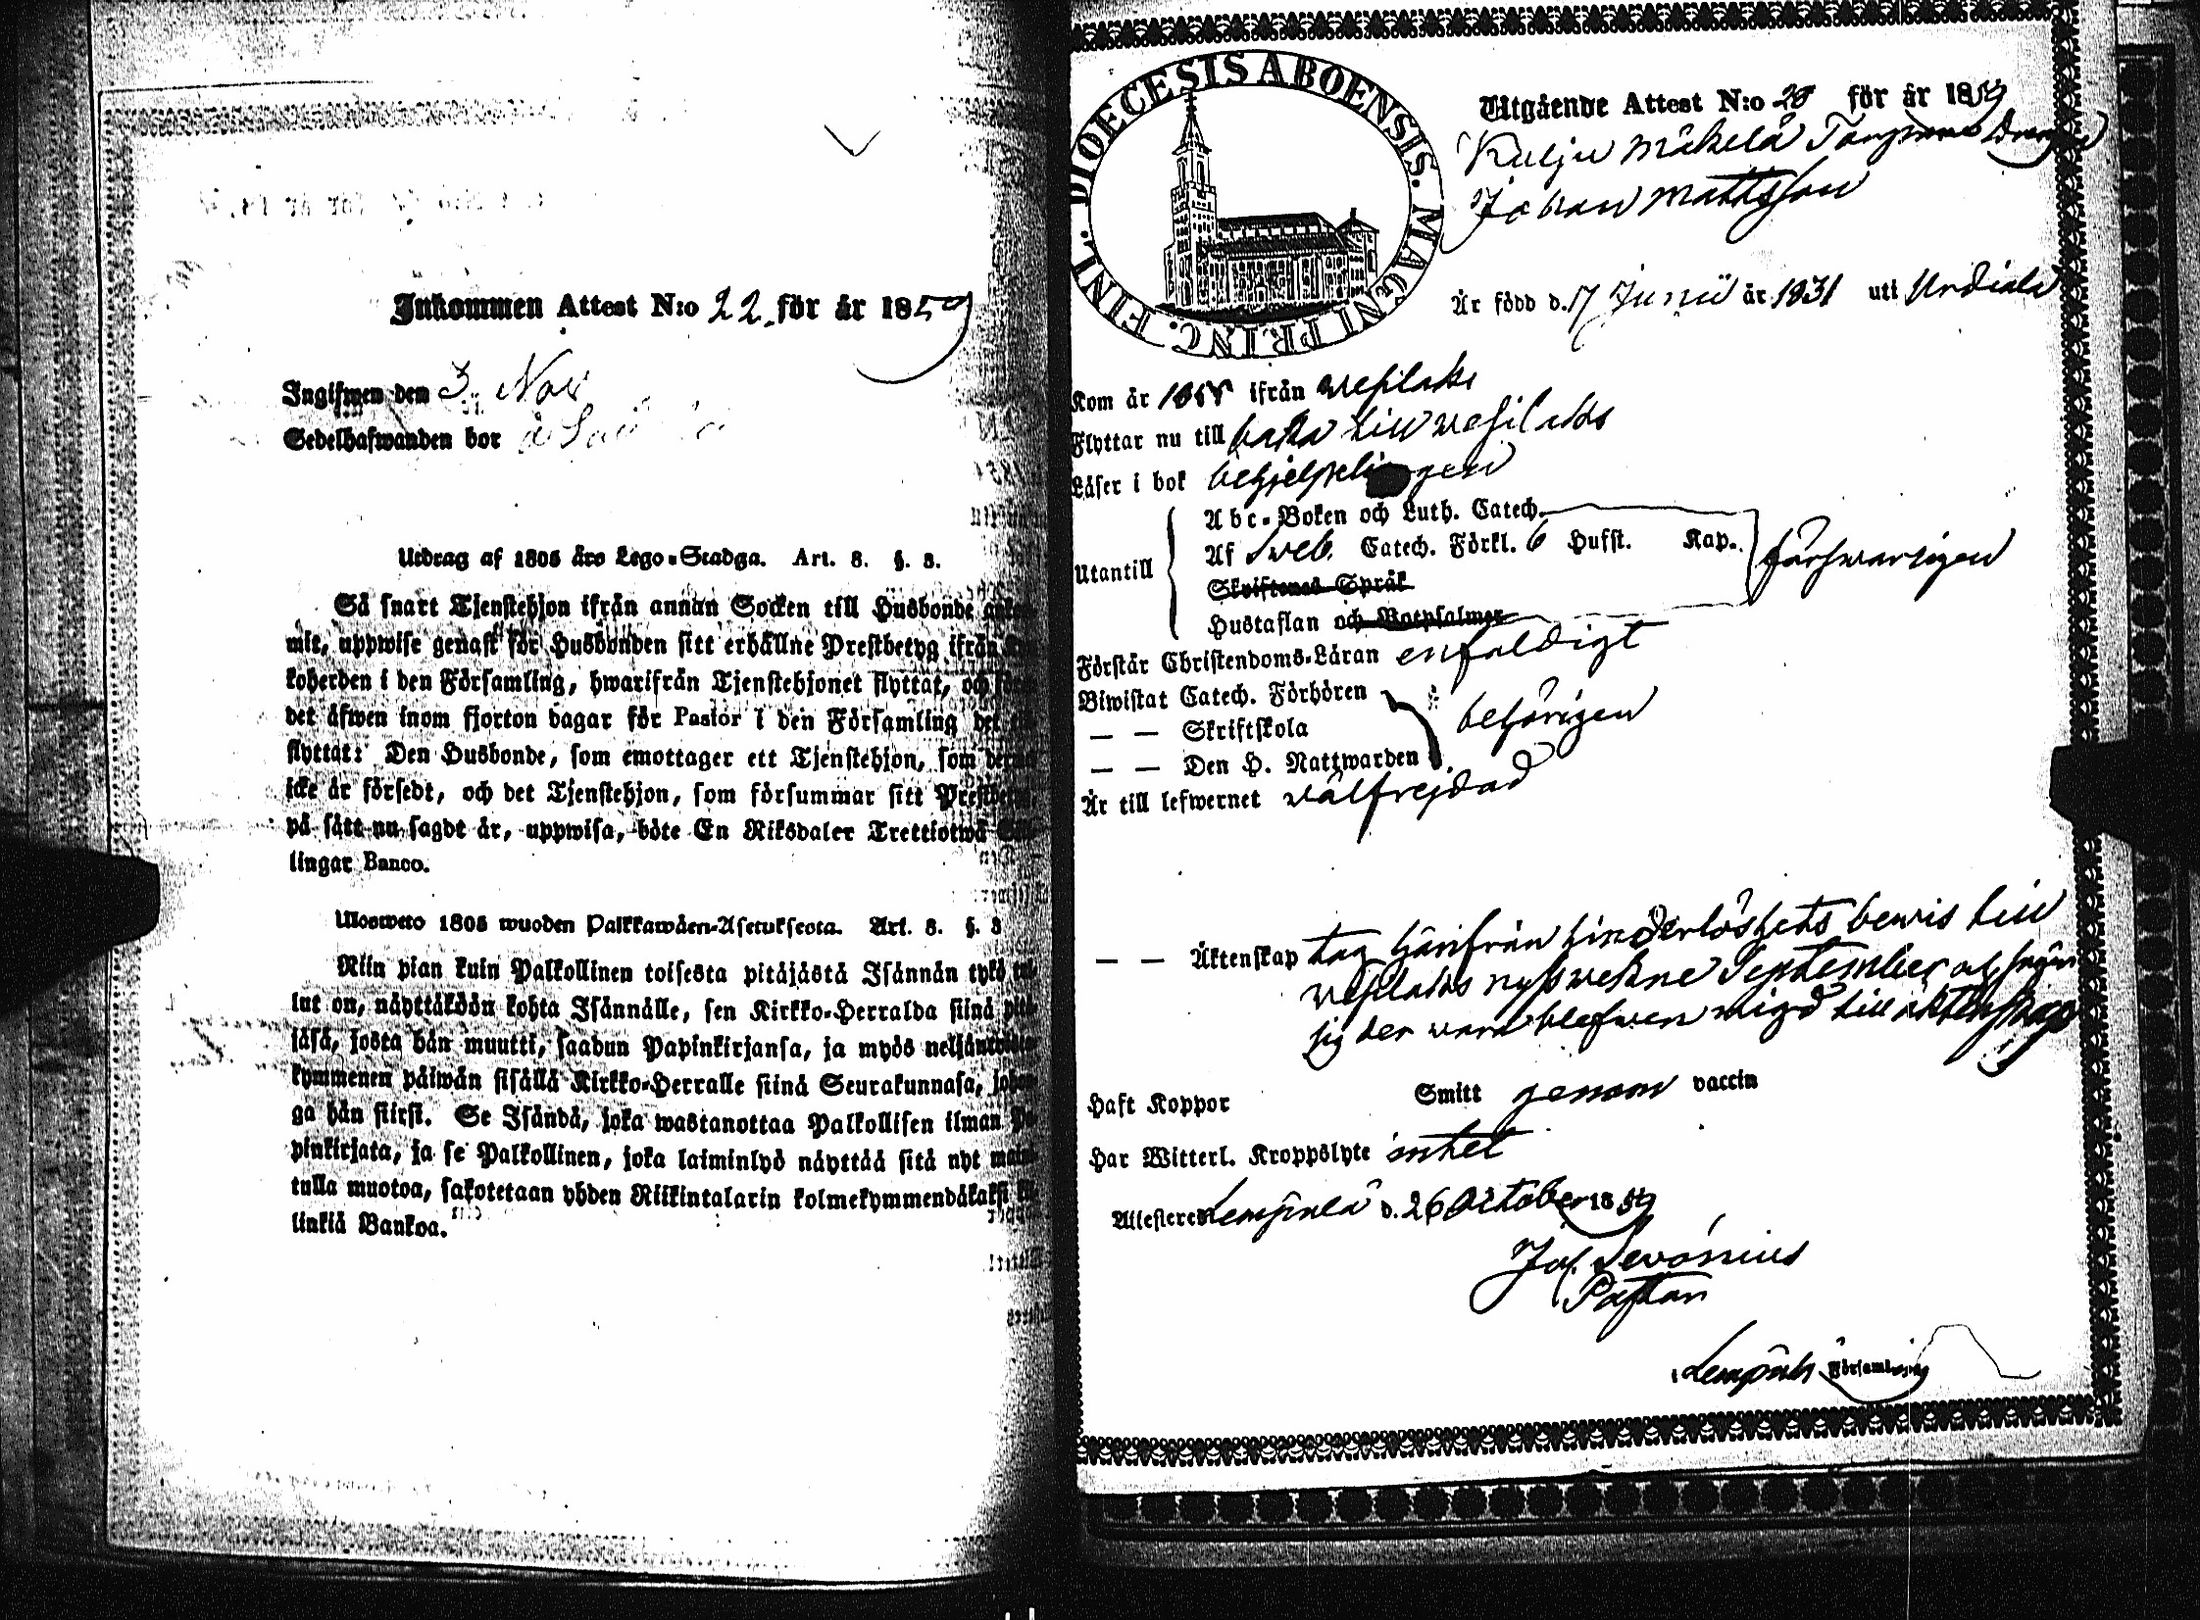 Inkommen Attest N:o 22. för år 1859
Ingifwen den 3. Nov
Sedelhafwanden bor å
Utdrag af 1805 års Lego-Stadga. Art. 8. §. 3.
Så snart Tjenstehjon ifrån annan Socken till Husbonde
mit, uppwise genast för Husbonden sitt erhållne Prestbetyg ifrån
koherden i den Församling, hwarifrån Tjenstehjonet flyttat, och
det äfwen inom fjorton dagar för Pastor i den Församling det
flyttat: Den Husbonde, som emottager ett Tjenstehjon, som
icke är försedt, och det Tjenstehjon, som försummar sitt
på sätt nu sagdt är, uppwisa, böte En Riksdaler Trettiotwå
lingar Banco.
Ulosweto 1805 wuoden Palkkawäen-Asetuksesta. Art. 8. §. 3
Niin pian kuin Palkollinen toisesta pitäjästä Isännän tykö
lut on, näyttäköön kohta Isännälle, sen Kirkko-Herralda siinä
jäsä, josta hän muutti, saadun Papinkirjansa, ja myös
kymmenen päiwän sisällä Kirkko-Herralle siinä Seurakunnasa,
ga hän siirsi. Se Isändä, joka wastanottaa Palkollisen ilman
pinkirjata, ja se Palkollinen, joka laiminlyö näyttää sitä nyt
tulla muotoa, sakotetaan yhden Riikintalarin kolmekymmendäkaksi
linkiä Bankoa.
DIOECESIS ABOENSIS. MAGNI PRINC. FINL.
Utgående Attest N:o 28 för år 1859
Kulju Mäkelä Torpare Dräng
Johan Mattsson
Är född d. 17 Junii år 1831 uti Urdiala
Kom år 1858 ifrån Wesilaks
Flyttar nu till baka till Wesilaks
Läser i bok behjelpeligen
Utantill
Abc-Boken och Luth. Catech.
Af Sveb. Catech. Förkl. 6 Hufst. Kap.
Skriftenes Språk
Hustaflan och Botpsalmer
försvarligen
Förstår Christendoms-Läran enfaldigt
Biwistat Catech. Förhören
— — Skriftskola
— — Den H. Nattwarden
behörigen
Är till lefwernet välfrejdad
— — Äktenskap tog härifrån hinderlöshets bewis till
Wesilaks nyssvekne September och säger
sig der vara blefwen wigd till äktenskap
Haft Koppor Smitt genom vaccin
Har Witterl. Kroppslyte intet
Attesteres Lempälä d. 26 October 1859
Jos. Sevónius
Pastor
Lempälä Församling